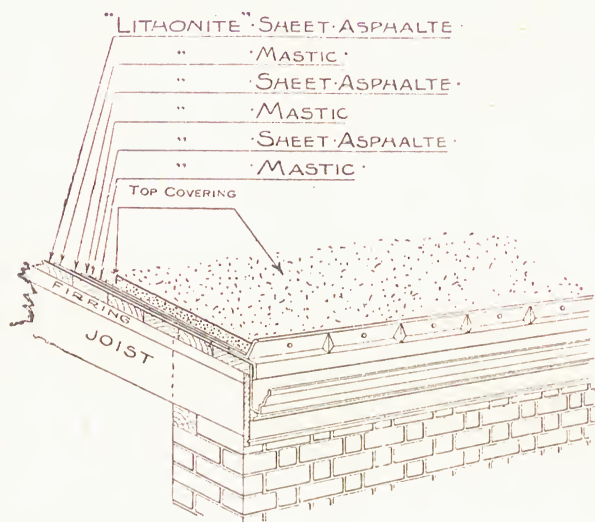 "LITHONITE" · SHEET · ASPHALTE ·
" · MASTIC ·
" · SHEET · ASPHALTE ·
" · MASTIC
" · SHEET · ASPHALTE ·
" · MASTIC ·
TOP COVERING
FIRRING
JOIST